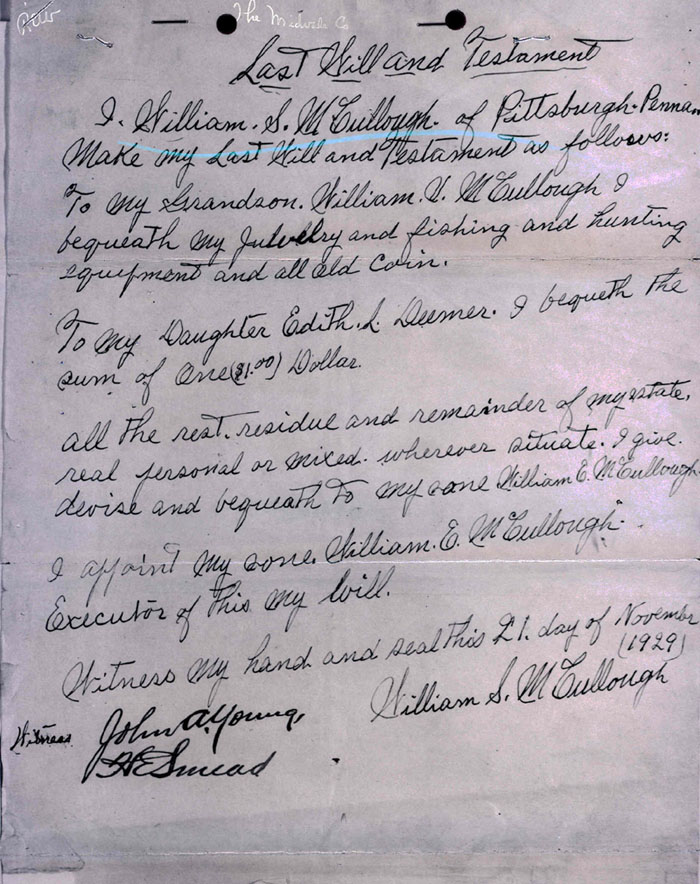 The Medvale Co
Last Will and Testament
I. William. S. McCullough. of Pittsburgh. Penna.
Make my Last Will and Testament as follows:
To my Grandson. William. V. McCullough I
bequeath my Julvelry and fishing and hunting
equipment and all old Coin.
To my Daughter Edith. L. Deemer. I bequeth the
sum of One ($1.00) Dollar.
all the rest. residue and remainder of my estate.
real personal or mixed. wherever situate. I give.
devise and bequeath to my sone William E. McCullough
I appoint my sone. William. E. McCullough.
Executor of this my Will.
Witness my hand and seal this 21. day of November
(1929)
William S. McCullough
Witness John A. Young.
H E Smead